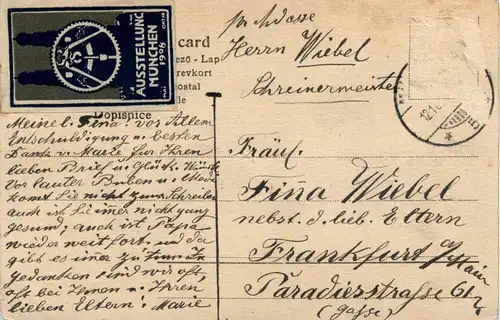 AUSSTELLUNG
MÜNCHEN
1908
MAI OKTBR
card
ezö-Lap
revkort
ostal
le
Dopisnice
Meine l. Fina! vor Allem
Entschuldigung u. besten
Dank v. Marie für Ihren
lieben Brief u. Glück. Wünsche
Vor lauter Buben u.
komt Sie nicht zum Schreiben
auch ist Sie imer nicht ganz
gesund; auch ist Papa
wieder weit fort. und da
gibt es einer zu tun. In
Gedanken sind wir oft,
oft bei Ihnen u. Ihren
lieben Eltern! Marie
per Adresse
Herrn Wiebel
Schreinermeister
Fräul.
Fina Wiebel
nebst. d. lieb. Eltern
Frankfurt a/Main
Paradiesstrasse 61
(gasse)